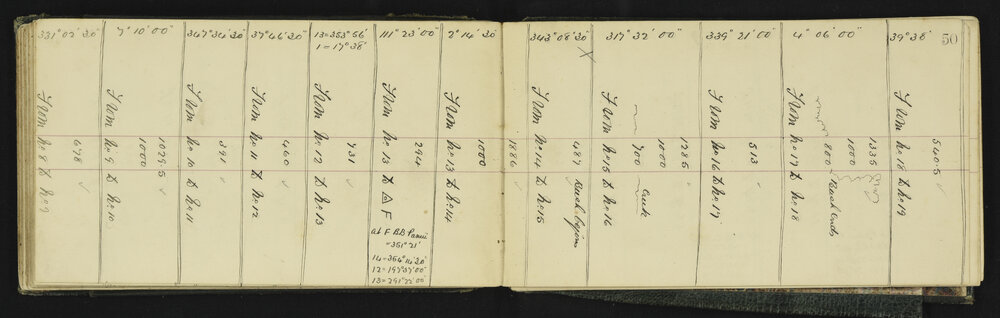 331° 02' 30"
678
From No 8 to No 9
7° 10' 00"
1029.5
1000
From No 9 to No 10
347° 34' 30"
391
From No 10 to No 11
37° 46' 30"
460
From No 11 to No 12
13 = 353° 56'
1 = 17° 38'
731
From No 12 to No 13
111° 23' 00"
294
From No 13 to △ F
at F BB
= 351° 21'
14 = 354° 14' 30"
12 = 197° 37' 00"
13 = 291° 22' 00"
2° 14' 30"
1000
From No 13 to No 14
343° 08' 30"
1886
487 Bush begins
From No 14 to No 15
317° 32' 00"
1285
1000
700 Creek
From No 15 to No 16
339° 21' 00"
513
From No 16 to No 17
4° 06' 00"
1335
1000
800 Bush ends
From No 17 to No 18
39° 38'
50
540.5
From No 18 to No 19